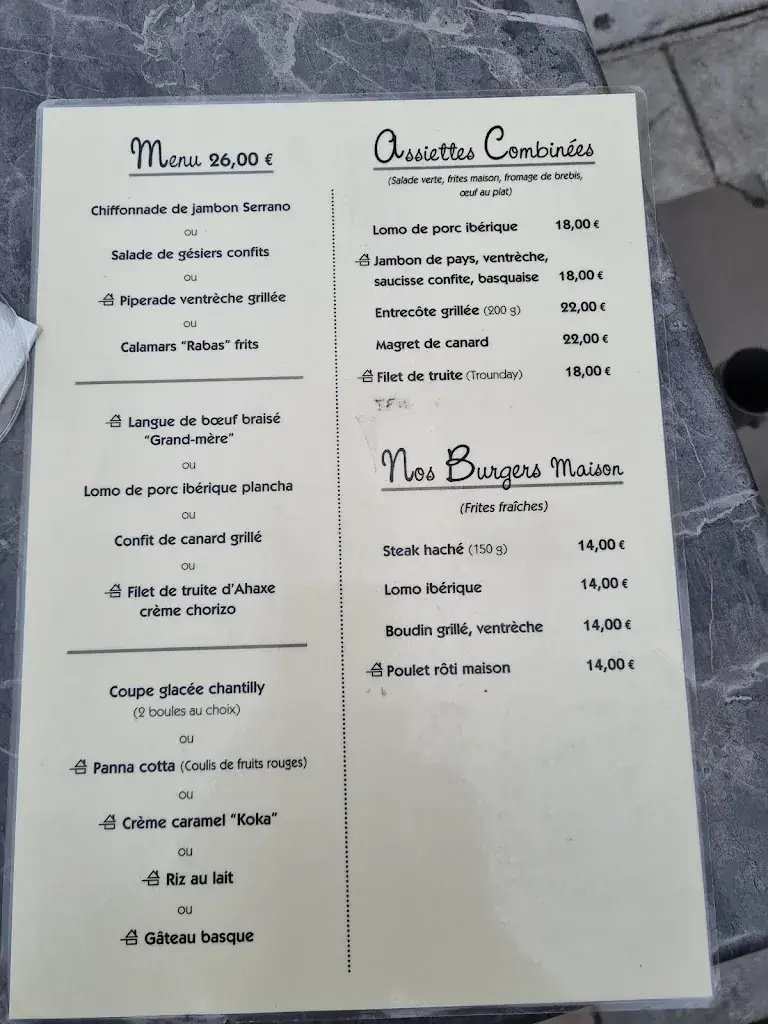 Menu 26,00 €
Chiffonnade de jambon Serrano
ou
Salade de gésiers confits
ou
Piperade ventrèche grillée
ou
Calamars "Rabas" frits
Langue de bœuf braisé
"Grand-mère"
ou
Lomo de porc ibérique plancha
ou
Confit de canard grillé
ou
Filet de truite d'Ahaxe
crème chorizo
Coupe glacée chantilly
(2 boules au choix)
ou
Panna cotta (Coulis de fruits rouges)
ou
Crème caramel "Koka"
ou
Riz au lait
ou
Gâteau basque
Assiettes Combinées
(Salade verte, frites maison, fromage de brebis,
œuf au plat)
Lomo de porc ibérique 18,00 €
Jambon de pays, ventrèche,
saucisse confite, basquaise 18,00 €
Entrecôte grillée (200 g) 22,00 €
Magret de canard 22,00 €
Filet de truite (Trounday) 18,00 €
Nos Burgers Maison
(Frites fraîches)
Steak haché (150 g) 14,00 €
Lomo ibérique 14,00 €
Boudin grillé, ventrèche 14,00 €
Poulet rôti maison 14,00 €